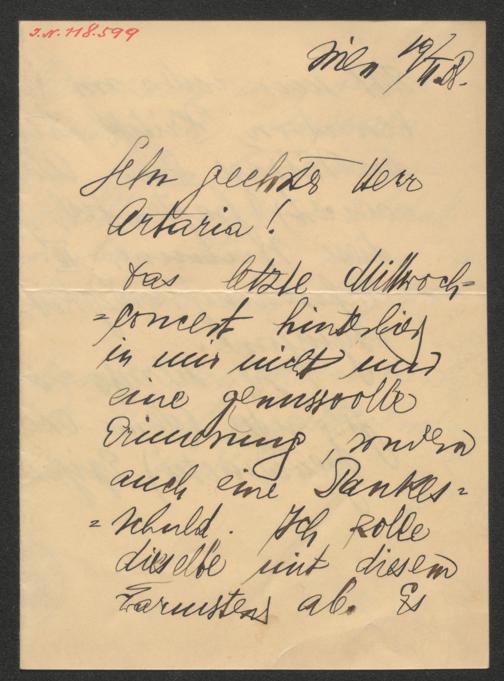 I.N. 118.599
Wien 19/II 08.
Sehr geehrter Herr
Artaria!
Das letzte Mittwoch-
=concert hinterließ
in mir nicht nur
eine genussvolle
Erinnerung, sondern
auch eine Dankes=
=schuld. Ich zolle
dieselbe mit diesem
wärmstens ab. Es